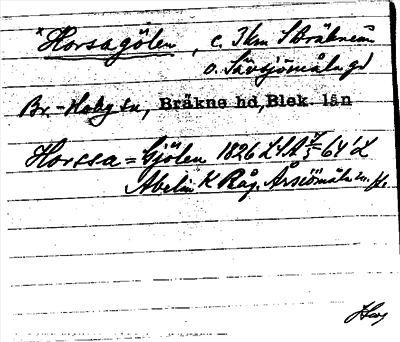 *Horsagölen, c. 3 km S Bräkneån
o. Sävsjömåla gd
Br.-Hoby sn, Bräkne hd, Blek. län
Horssa = Gjölen 1826 LSA 64 L
Abelin K Råg. Årsjömåla m. fl.